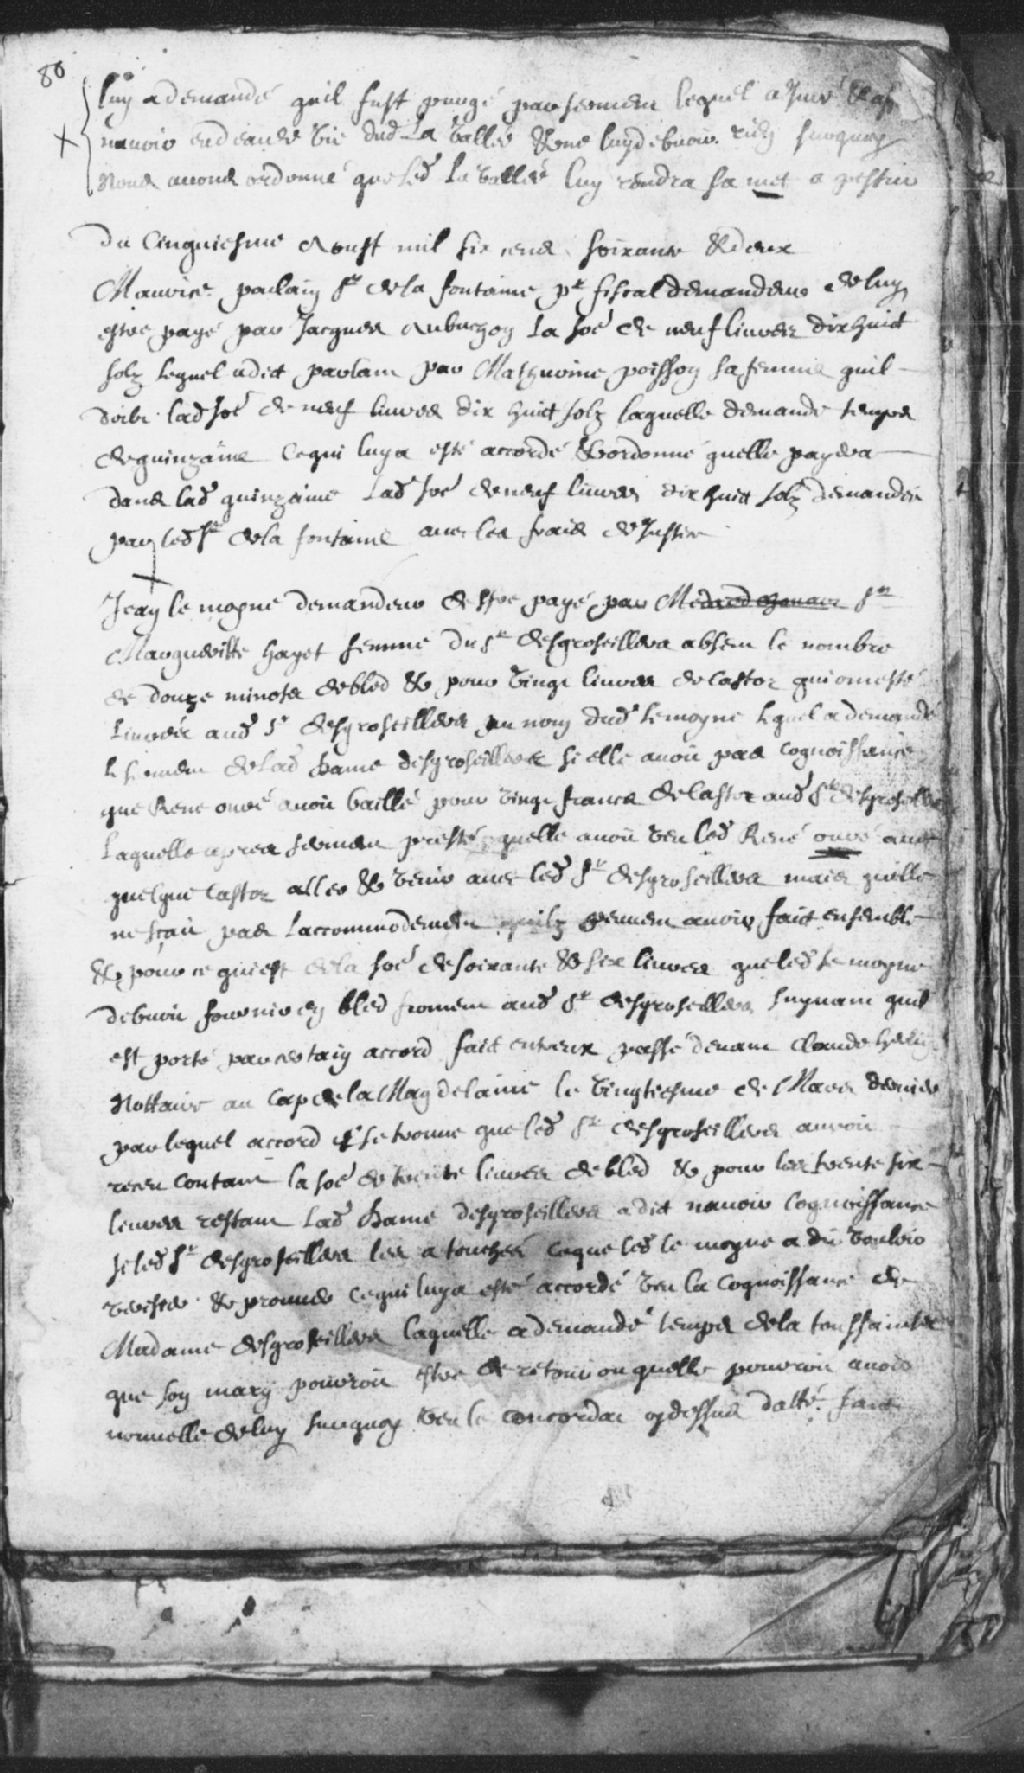 80
luy a demandé quil fust purgé par serment lequel a Juré & af
navoir endeaudé vie dud La vallée & ne luy debvoir rien surquoy
Nous avons ordonné que led La vallée luy rendra sa
du Cinquiesme Aoust mil six cens soixante & deux
Maurice poulain sr de la fontaine pr fiscal demandeur de luy
estre payé par Jacques Aubuchon La soe de neuf livres dix huict
solz lequel a dict parlant par Mathurine poisson sa femme quil
doibt lad soe de neuf livres dix huict solz laquelle demande temps
de quinzaine ce qui luy a esté accordé & ordonné quelle payera
dans lad quinzaine lad soe de neuf livres dix huict solz demandée
par led sr de la fontaine avec les frais de Justice
Jean le moyne demandeur destre payé par sr
Margueritte hayet femme du sr desgroseillers absent le nombre
de douze minots de bled & pour vingt livres de Castor qui ont esté
livrés aud sr desgroseillers au nom dud le moyne lequel a demandé
le serment de lad dame desgroseillers si elle avoit pas cognoissance
que René ouvé avoit baillé pour vingt francs de Castor aud sr desgroseillers
Laquelle apres serment presté quelle avoit veu led René ouvé avec
quelque Castor aller & venir avec led sr desgroseillers mais quelle
ne scait pas Laccommodement quilz peuvent avoir faict ensemble
& pour ce qui est de la soe de soixante & six livres que led le moyne
debvoit fournir en bled froment aud sr desgroseillers suyvant quil
est porté par certain accord faict entreux passé devant Claude herlin
Nottaire au Cap de la Magdelaine le vingtiesme de Mars dernier
par lequel accord il se trouve que led sr desgroseillers auroit
receu contant la soe de trente livres de bled & pour les trente six
livres restant Lad dame desgroseillers a dict navoir cognoissance
si led sr desgroseillers les a touchés ce que led le moyne a dit vouloir
veriffier & prouver ce qui luy a esté accordé veu la cognoissance de
Madame desgroseillers laquelle a demandé temps de la toussaintz
que son mary pouroit estre de retour ou quelle pouroit avoir
nouvelle de luy surquoy veu le concordat cy dessus datté. faict